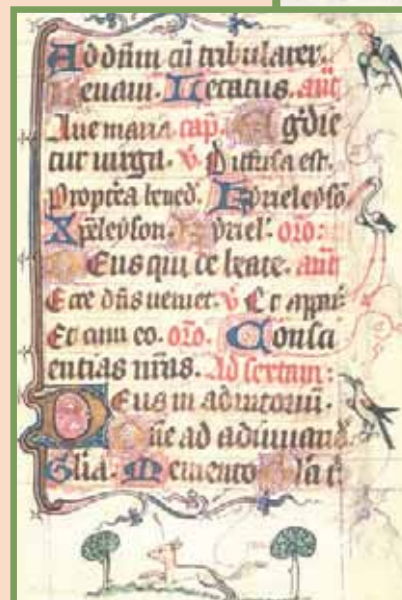 Ad dñm cū tribularer.
Levavi. Letatus. añt
Ave maria cap. Egrdie
tur virga. v Diffusa est.
Propterea bened. Kyrieleyso
Xpeleyson. Kyriel'. oro:
Deus qui de beate. añt
Ecce dñs veniet. v Et appe
Et cum eo. oro. Consci
entias nr̃as. Ad sextam:
Deus in adiutoriū.
Dñe ad adiuvand.
Glia. Memento